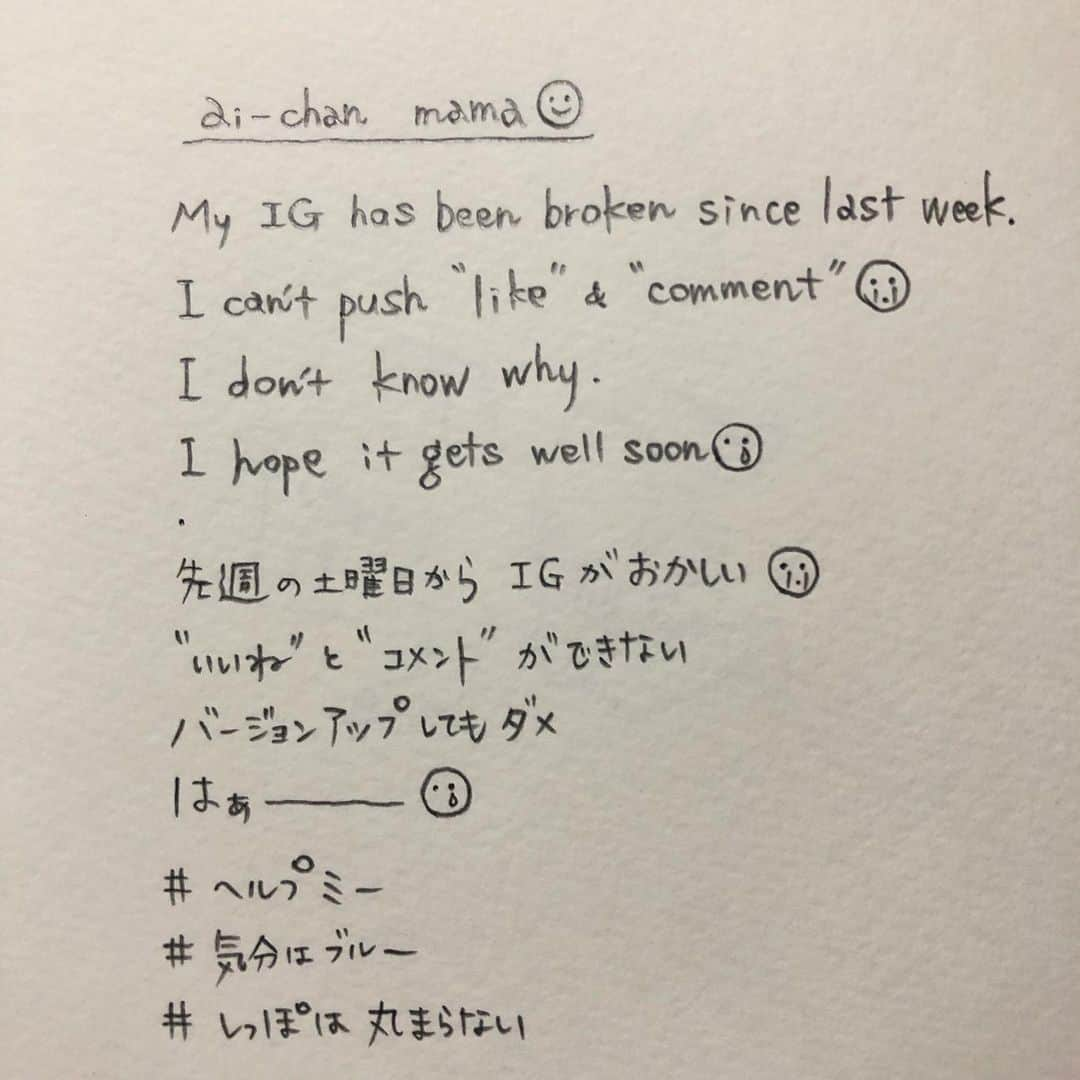 ai-chan mama
My IG has been broken since last week.
I can't push "like" & "comment"
I don't know why.
I hope it gets well soon
.
先週の土曜日から IGがおかしい
"いいね"と"コメント"ができない
バージョンアップしてもダメ
はぁ———
# ヘルプミー
# 気分はブルー
# しっぽは丸まらない